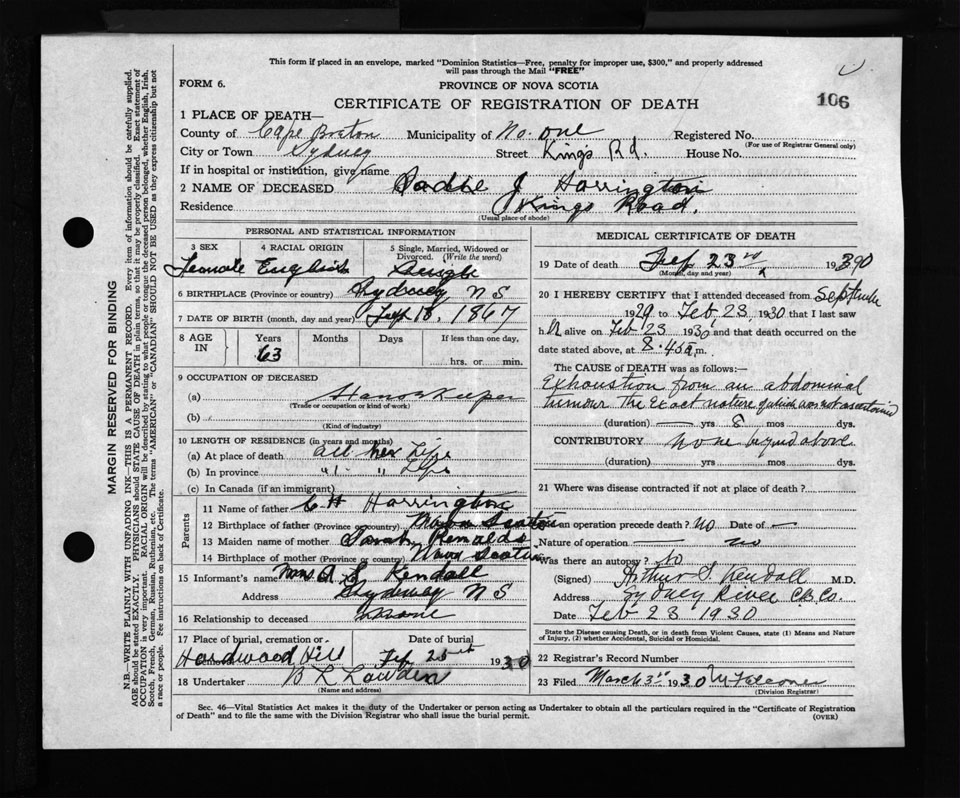 This form if placed in an envelope, marked "Dominion Statistics—Free, penalty for improper use, $300," and properly addressed
will pass through the Mail "FREE"
FORM 6.
PROVINCE OF NOVA SCOTIA
106
CERTIFICATE OF REGISTRATION OF DEATH
1 PLACE OF DEATH—
County of Cape Breton Municipality of No. one Registered No.
(For use of Registrar General only)
City or Town Sydney Street Kings Rd. House No.
If in hospital or institution, give name
2 NAME OF DECEASED J Harrington
Residence Kings Road.
(Usual place of abode)
PERSONAL AND STATISTICAL INFORMATION
3 SEX 4 RACIAL ORIGIN 5 Single, Married, Widowed or Divorced. (Write the word)
Female English Single
6 BIRTHPLACE (Province or country) Sydney N S
7 DATE OF BIRTH (month, day and year) 18, 1867
8 AGE IN Years Months Days If less than one day,
63 hrs. or min.
9 OCCUPATION OF DECEASED
(a)
(Trade or occupation or kind of work)
(b)
(Kind of industry)
10 LENGTH OF RESIDENCE (in years and months)
(a) At place of death all her Life
(b) In province " " Life
(c) In Canada (if an immigrant)
Parents
11 Name of father C H Harrington
12 Birthplace of father (Province or country) Nova Scotia
13 Maiden name of mother Sarah Renalds
14 Birthplace of mother (Province or country) Nova Scotia
15 Informant's name Mrs A S Kendall
Address Sydney N S
16 Relationship to deceased
17 Place of burial, cremation or Date of burial
Hardwood Hill 25th 1930
18 Undertaker B L Lowden
(Name and address)
MEDICAL CERTIFICATE OF DEATH
19 Date of death 23rd 1930
(Month, day and year)
20 I HEREBY CERTIFY that I attended deceased from September
1929 to Feb 23 1930 that I last saw
h er alive on Feb 23 1930 and that death occurred on the
date stated above, at 8.45 a m.
The CAUSE OF DEATH was as follows:
Exhaustion from an abdominal
tumour the exact nature of which was not ascertained
(duration) — yrs 8 mos dys.
CONTRIBUTORY none beyond above
(duration) yrs mos dys.
21 Where was disease contracted if not at place of death?
an operation precede death? no Date of —
Nature of operation — no
Was there an autopsy? no
(Signed) Arthur S. Kendall M.D.
Address Sydney River C.B. Co.
Date Feb 23 1930
State the Disease causing Death, or in death from Violent Causes, state (1) Means and Nature
of Injury, (2) whether Accidental, Suicidal or Homicidal.
22 Registrar's Record Number
23 Filed March 3rd 1930
(Division Registrar)
Sec. 46—Vital Statistics Act makes it the duty of the Undertaker or person acting as Undertaker to obtain all the particulars required in the "Certificate of Registration
of Death" and to file the same with the Division Registrar who shall issue the burial permit.
(OVER)
MARGIN RESERVED FOR BINDING
N.B.—WRITE PLAINLY WITH UNFADING INK—THIS IS A PERMANENT RECORD. Every item of information should be carefully supplied.
AGE should be stated EXACTLY. PHYSICIANS should STATE CAUSE OF DEATH in plain terms, so that it may be properly classified. Exact statement of
OCCUPATION is very important. RACIAL ORIGIN will be described by stating to what people or tongue the deceased person belonged, whether English, Irish,
Scotch, French, German, Russian, Ruthenian, etc. The terms "AMERICAN" or "CANADIAN" SHOULD NOT BE USED as they express citizenship but not
a race or people. See instructions on back of Certificate.